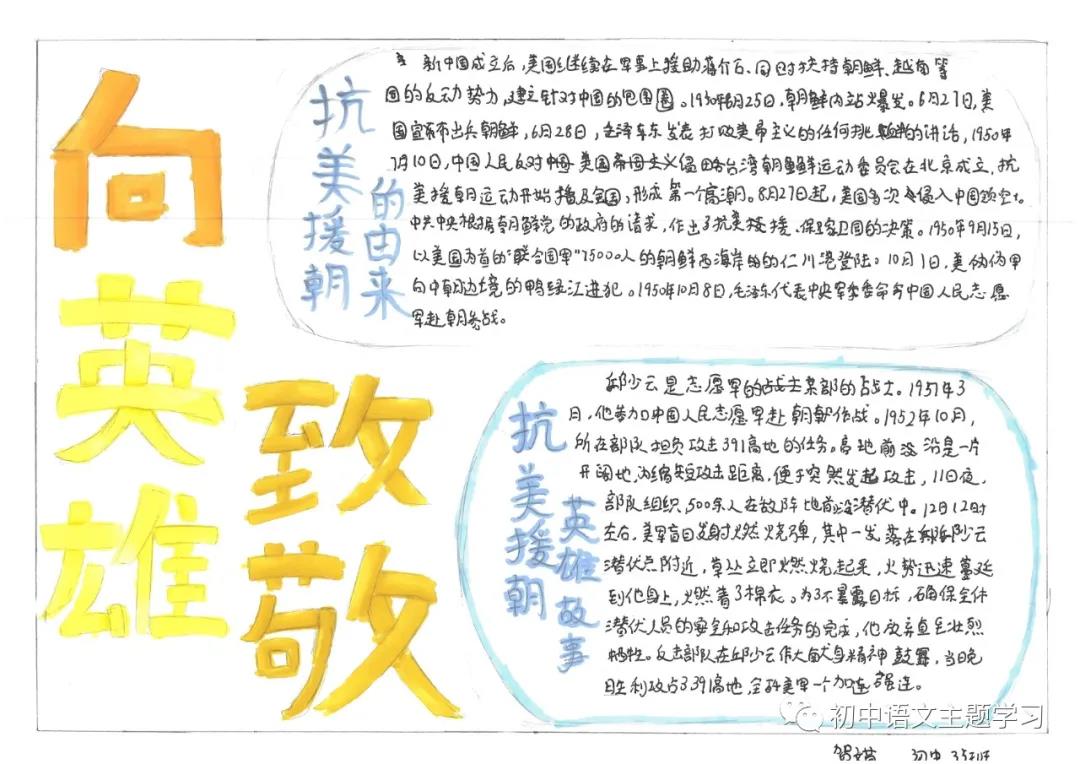 向英雄
致敬
抗美援朝
的由来
新中国成立后,美国继续在军事上援助蒋介石、同时扶持朝鲜、越南等
国的反动势力,建立针对中国的包围圈。1950年6月25日,朝鲜内站爆发。6月27日,美
国宣布出兵朝鲜,6月28日,毛泽东发表打败美帝主义的任何挑的讲话,1950年
7月10日,中国人民反对中国美国帝国主义侵略台湾朝鲜运动委员会在北京成立,抗
美援朝运动开始播及全国,形成第一个高潮。8月27日起,美国多次侵入中国领空。
中共中央根据朝鲜党的政府的请求,作出了抗美援,保家卫国的决策。1950年9月15日,
以美国为首的"联合国军"75000人的朝鲜西海岸的的仁川港登陆。10月1日,美伪伪军
向中朝边境的鸭绿江进犯。1950年10月8日,毛泽东代表中央军委命令中国人民志愿
军赴朝参战。
抗美援朝
英雄故事
邱少云是志愿军的战士某部的战士。1951年3
月,他参加中国人民志愿军赴朝作战。1952年10月,
所在部队担负攻击391高地的任务。高地前沿是一片
开阔地,为缩短攻击距离,便于突然发起攻击,11日夜,
部队组织500余人在敌阵地前沿潜伏中。12日12时
左右,美军盲目发射燃烧弹,其中一发落在邱少云
潜伏点附近,草丛立即燃烧起来,火势迅速蔓延
到他身上,燃着了棉衣。为了不暴露目标,确保全体
潜伏人员的安全和攻击任务的完成,他放弃直至壮烈
牺牲。反击部队在邱少云伟大献身精神鼓舞,当日晚
胜利攻占391高地,全歼美军一个加强连。
初中语文主题学习